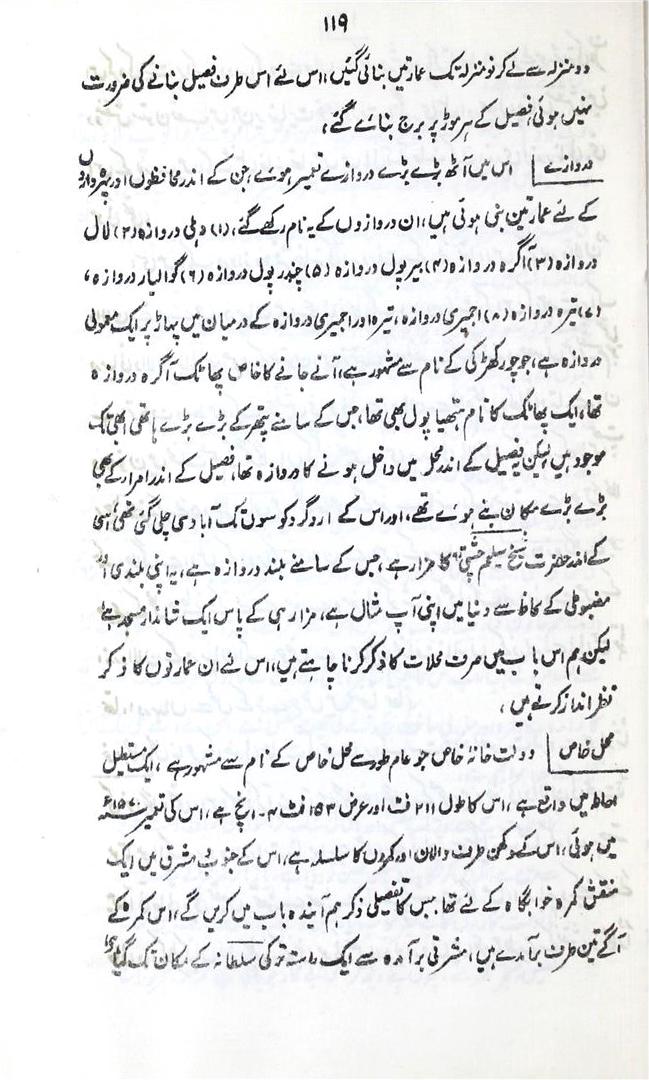 ۱۱۹
دو منزلہ سے لے کر نو منزلہ تک عمارتیں بنائی گئیں، اس لئے اس طرف فصیل بنانے کی ضرورت
نہیں ہوئی، فصیل کے ہر موڑ پر برج بنائے گئے،
دروازے | اس میں آٹھ بڑے بڑے دروازے تعمیر ہوئے، جن کے اندر محافظوں اور پہرہ داروں
کے لئے عمارتیں بنی ہوئی ہیں، ان دروازوں کے یہ نام رکھے گئے، (۱) دہلی دروازہ (۲) لال
دروازہ (۳) آگرہ دروازہ (۴) بیرپول دروازہ (۵) چندرپول دروازہ (۶) گوالیار دروازہ،
(۷) تیرہ دروازہ (۸) اجمیری دروازہ، تیرہ اور اجمیری دروازہ کے درمیان میں پہاڑ پر ایک معمولی
دروازہ ہے، جو چور کھڑکی کے نام سے مشہور ہے، آنے جانے کا خاص پھاٹک آگرہ دروازہ
تھا، ایک پھاٹک کا نام ہتھیا پول بھی تھا، جس کے سامنے پتھر کے بڑے بڑے ہاتھی ابھی تک
موجود ہیں لیکن یہ فصیل کے اندر محل میں داخل ہونے کا دروازہ تھا، فصیل کے اندر امراء کے بھی
بڑے بڑے مکان بنے ہوئے تھے، اور اس کے اردگرد کوسوں تک آبادی چلی گئی تھی، اسی
کے اندر حضرت شیخ سلیم چشتیؒ کا مزار ہے، جس کے سامنے بلند دروازہ ہے، یہ اپنی بلندی اور
مضبوطی کے لحاظ سے دنیا میں اپنی آپ مثال ہے، مزار ہی کے پاس ایک شاندار مسجد ہے
لیکن ہم اس باب میں صرف محلات کا ذکر کرنا چاہتے ہیں، اس لئے ان عمارتوں کا ذکر
نظر انداز کرتے ہیں،
محل خاص | دولت خانۂ خاص جو عام طور سے محل خاص کے نام سے مشہور ہے، ایک مستطیل
احاطہ میں واقع ہے، اس کا طول ۲۱۱ فٹ اور عرض ۱۵۳ فٹ ۴ - انچ ہے، اس کی تعمیر ۱۵۷۰ء
میں ہوئی، اس کے دکھن طرف دالان اور کمروں کا سلسلہ ہے، اس کے جنوب مشرق میں ایک
منقش کمرہ خوابگاہ کے لئے تھا جس کا تفصیلی ذکر ہم آیندہ باب میں کریں گے، اس کمرہ کے
آگے تین طرف برآمدے ہیں، مشرقی برآمدہ سے ایک راستہ ترکی سلطانہ کے مکان تک گیا ہے